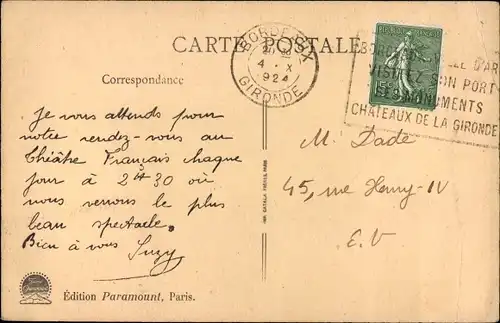 CARTE POSTALE
BORDEAUX
4 · X
924
GIRONDE
BORDEAUX VILLE D'AR
VISITEZ SON PORT
SES MONUMENTS
CHÂTEAUX DE LA GIRONDE
Correspondance
Je vous attends pour
notre rendez-vous au
théâtre Français chaque
jour à 2H30 où
nous verrons le plus
beau spectacle.
Bien à vous Suzy
M. Dade
45, rue Henry-IV
E.V
Édition Paramount, Paris.